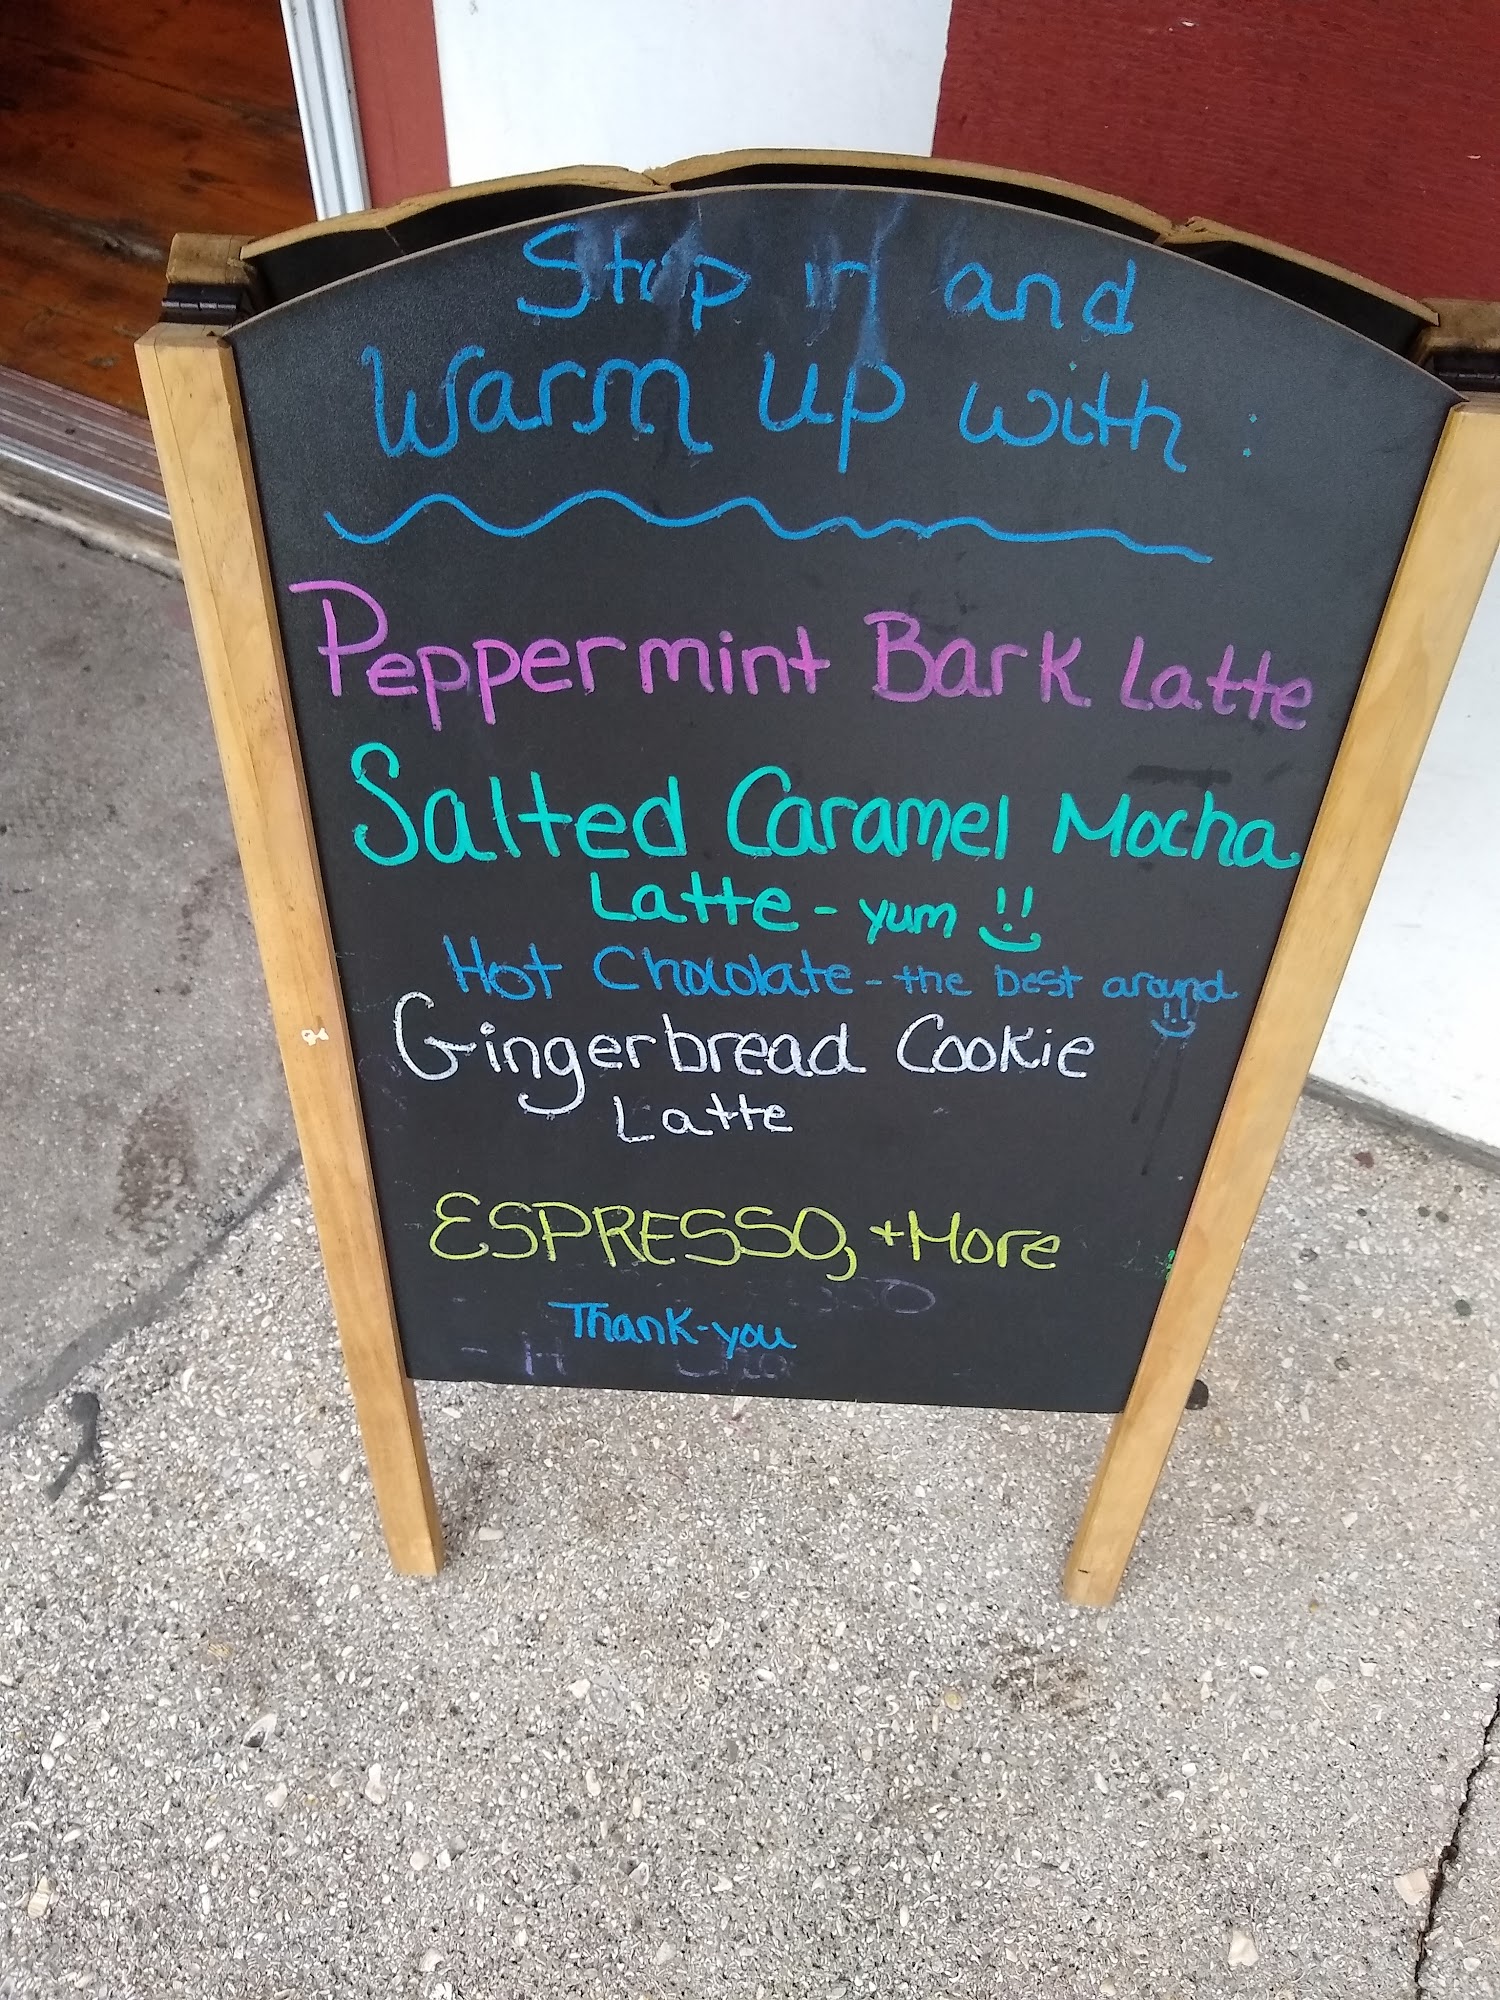 Stop in and
Warm up with:
Peppermint Bark Latte
Salted Caramel Mocha
Latte - yum
Hot Chocolate - the best around
Gingerbread Cookie
Latte
ESPRESSO, + More
Thank-you